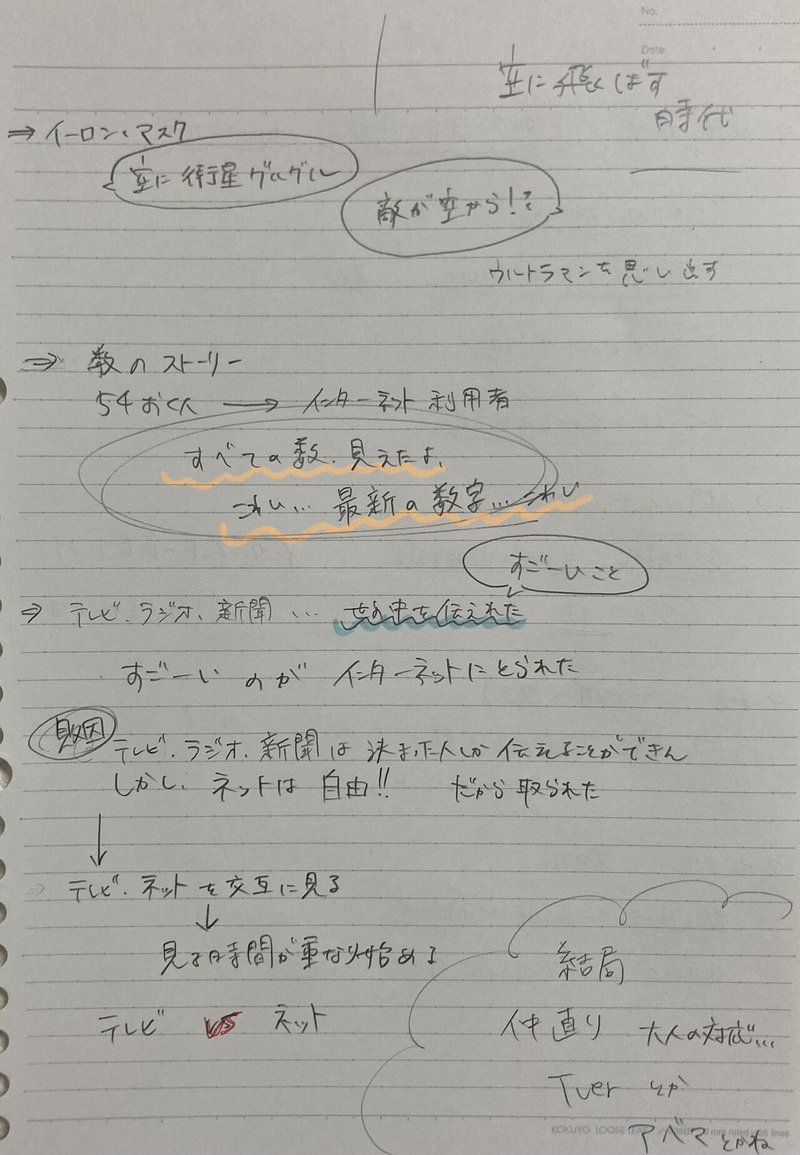 No.
Date
空に飛ばす
時代
⇒ イーロン・マスク
空に衛星グルグル
敵が空から!?
ウルトラマンを思い出す
⇒ 数のストーリー
54おく人 → インターネット利用者
すべての数、見えたよ、
こわい… 最新の数字… こわい
すごーいこと
⇒ テレビ、ラジオ、新聞 … 世の中を伝えれた
すごーい のが インターネットにとられた
敗因
テレビ、ラジオ、新聞は 決まった人しか 伝えることができん
しかし、ネットは 自由!! だから取られた
↓
⇒ テレビ、ネットを交互に見る
↓
見る時間が重なり始める
テレビ VS ネット
結局
仲直り 大人の対応…
Tver とか
アベマとかね
KOKUYO LOOSE-LEAF mm ruled lines